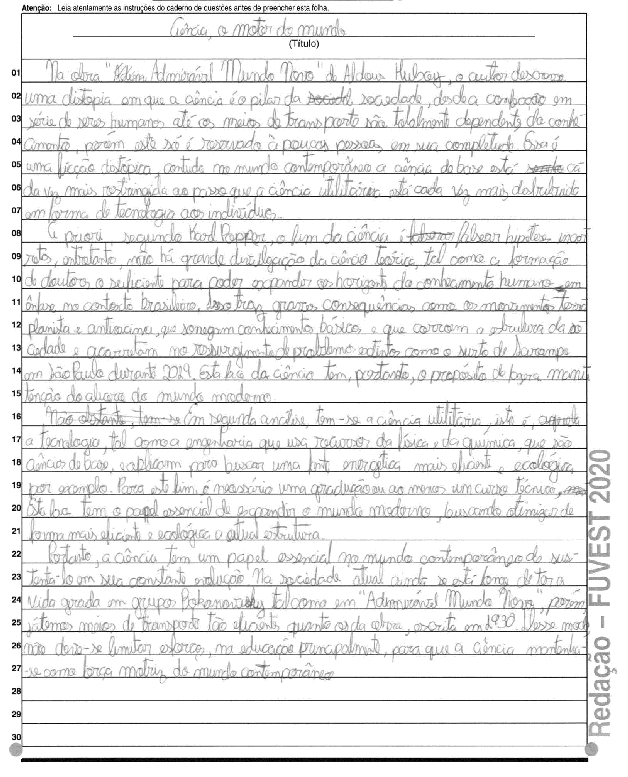 Atenção: Leia atentamente as instruções do caderno de questões antes de preencher esta folha.
Ciência, o motor do mundo
(Título)
01 Na obra "Admirável Mundo Novo" de Aldous Huxley, o autor descreve
02 uma distopia em que a ciência é o pilar da sociedade, desde a confecção em
03 série de seres humanos até os meios de transporte são totalmente dependente da conhe-
04 cimento, porém este só é reservado à poucas pessoas em sua completude. Essa é
05 uma ficção distópica, contudo no mundo contemporâneo a ciência de base está ca
06 da vez mais restringida ao passo que a ciência utilitária está cada vez mais distribuida
07 em forma de tecnologia aos indivíduos.
08 A priori, segundo Karl Popper, o fim da ciência é falsear hipótese incor
09 retas, entretanto, não há grande divulgação da ciência teórica, tal como a formação
10 de doutores o suficiente para poder expandir os horizontes do conhecimento humano, em
11 ênfase no contexto brasileiro. Isso traz graves consequências como os movimentos terra
12 planista e antivacina, que sonegam conhecimento básico e que corroem a estrutura da so
13 ciedade e acarretam no ressurgimento de problemas extintos como o surto de Sarampo
14 em São Paulo durante 2019. Esta face da ciência tem, portanto, o propósito de fazer a manu
15 tenção do alicerce do mundo moderno.
16 Em segunda análise, tem-se a ciência utilitária, isto é,
17 a tecnologia, tal como a engenharia que usa recursos da física e da química, que são
18 ciências de base, e aplicam para buscar uma fonte energética mais eficiente e ecológica,
19 por exemplo. Para este fim, é necessário uma graduação ou ao menos um curso técnico,
20 Esta face tem o papel essencial de expandir o mundo moderno, buscando otimizar de
21 forma mais eficiente e ecológica a atual estrutura.
22 Portanto, a ciência tem um papel essencial no mundo contemporâneo de sus-
23 tentá-lo em sua constante evolução. Na sociedade atual ainda se está longe de ter a
24 vida gerada em grupos Bokanovsky tal como em "Admirável Mundo Novo", porém
25 já temos meios de transporte tão eficiente quanto os da obra, escrita em 1930. Desse modo
26 não deve-se limitar esforços, na educação principalmente, para que a ciência mantenha-
27 -se como força motriz do mundo contemporâneo
28
29
30
Redação – FUVEST 2020